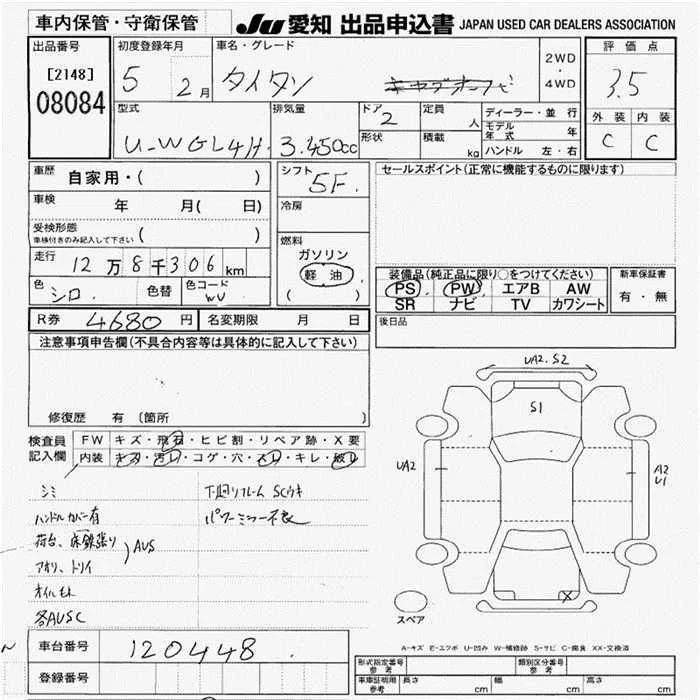 車内保管・守衛保管
JU 愛知 出品申込書 JAPAN USED CAR DEALERS ASSOCIATION
出品番号 初度登録年月 車名・グレード 評価点
[2148] 5 2月 タイタン 2WD・4WD 3.5
08084
型式 排気量 ドア 定員 人 ディーラー・並行 外装 内装
U-WGL4H 3.450cc 2 モデル年式 年 C C
形状 積載 kg ハンドル 左・右
車歴 自家用・( ) シフト 5F. セールスポイント(正常に機能するものに限ります)
車検 年 月( 日) 冷房
受検形態 ( )
車検付きのみ記入して下さい
燃料
走行 12万8千306km ガソリン
軽油
( )
装備品(純正品に限り○をつけてください) 新車保証書
色 シロ 色替 色コード WU PS PW エアB AW 有・無
SR ナビ TV カワシート
R券 4680円 名変期限 月 日 後日品
注意事項申告欄(不具合内容等は具体的に記入して下さい)
修復歴 有 〔箇所 〕
UA2. S2
S1
UA2
A2
U1
X
検査員記入欄 FW キズ・飛石・ヒビ割・リペア跡・X要
内装 キズ・汚レ・コゲ・穴・スレ・キレ・破レ
シミ 下廻りフレーム SCウキ
ハンドルカバー有 パワーミラー不良
荷台、床鉄張り AUS
アオリ、トリイ
オイルもれ
各AUSC
スペア
A-キズ E-エクボ U-凹み W-補修跡 S-サビ C-腐食 XX-交換済
車台番号 120448.
登録番号
形式指定番号 参考 類別区分番号 参考
車庫証明用 参考 長さ cm 幅 cm 高さ cm